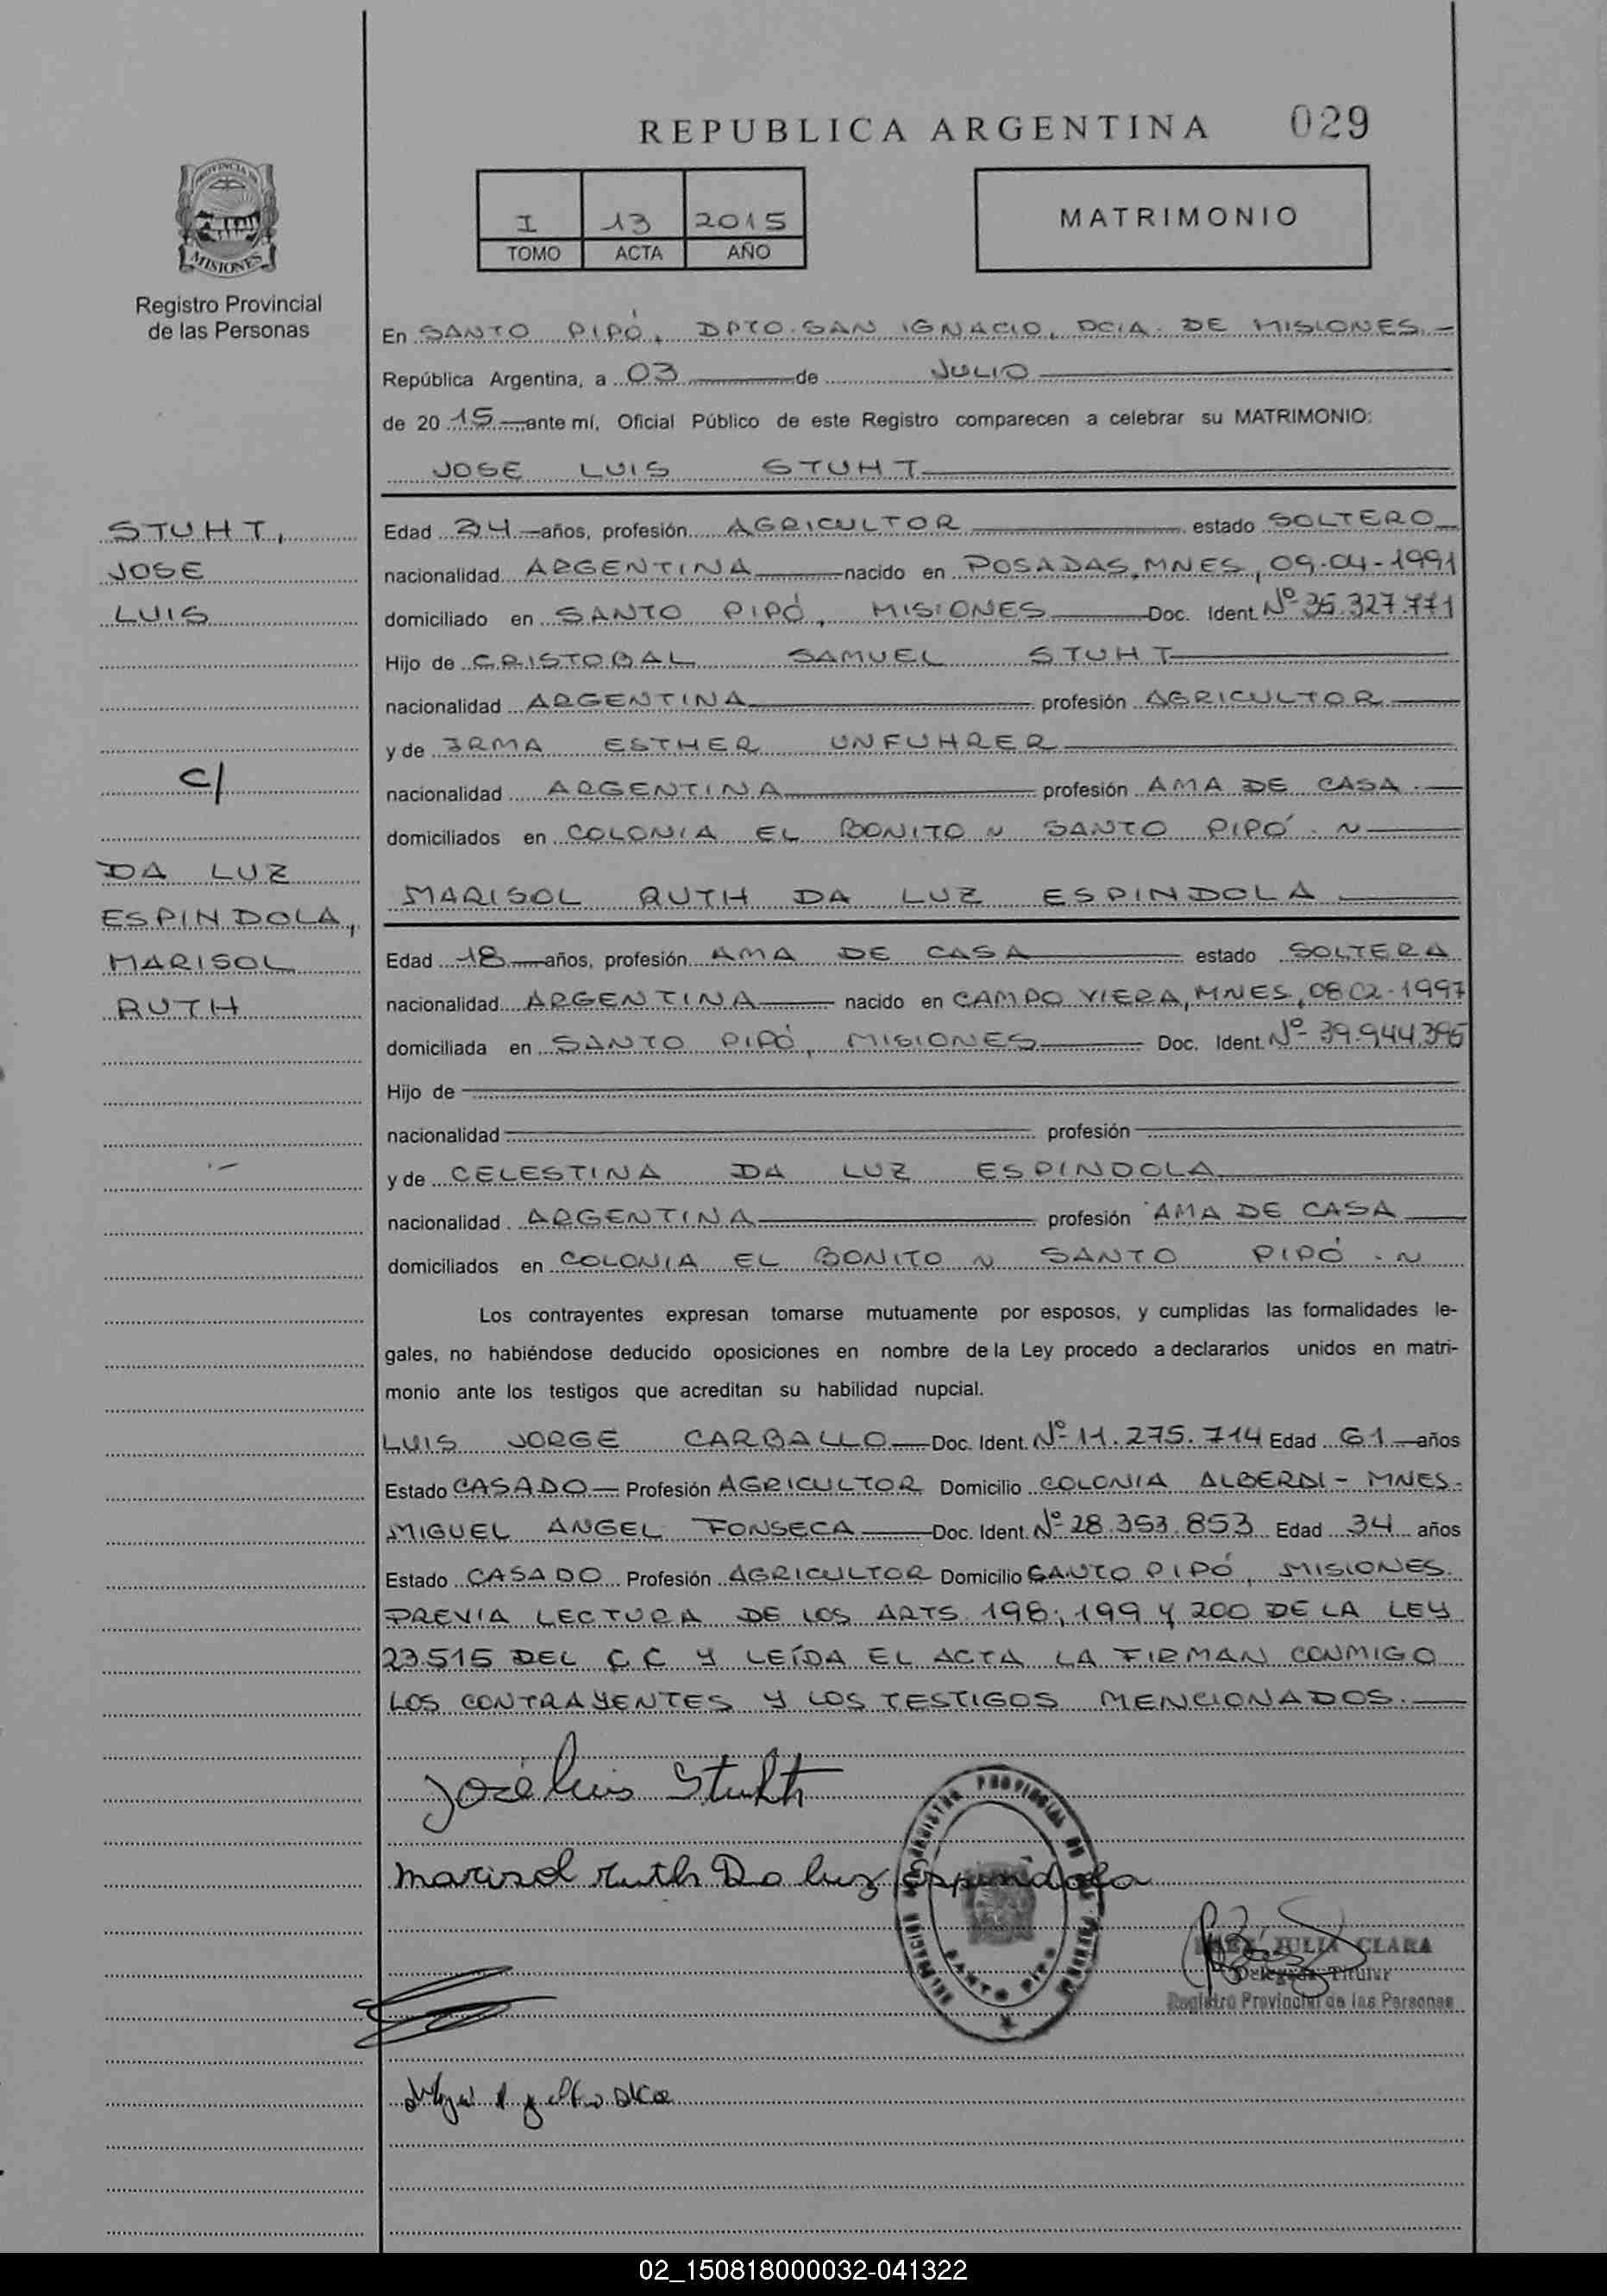 REPUBLICA ARGENTINA 029
PROVINCIA DE
MISIONES
Registro Provincial
de las Personas
I 13 2015
TOMO ACTA AÑO
MATRIMONIO
En SANTO PIPÓ, DPTO. SAN IGNACIO, PCIA. DE MISIONES.
República Argentina, a 03 de JULIO
de 20 15 ante mí, Oficial Público de este Registro comparecen a celebrar su MATRIMONIO:
JOSE LUIS STUHT
STUHT,
JOSE
LUIS
C/
DA LUZ
ESPINDOLA,
MARISOL
RUTH
Edad 24 años, profesión AGRICULTOR estado SOLTERO
nacionalidad ARGENTINA nacido en POSADAS, MNES, 09-04-1991
domiciliado en SANTO PIPÓ, MISIONES Doc. Ident. Nº 35.327.771
Hijo de CRISTOBAL SAMUEL STUHT
nacionalidad ARGENTINA profesión AGRICULTOR
y de IRMA ESTHER UNFUHRER
nacionalidad ARGENTINA profesión AMA DE CASA.
domiciliados en COLONIA EL BONITO ~ SANTO PIPÓ. ~
MARISOL RUTH DA LUZ ESPINDOLA
Edad 18 años, profesión AMA DE CASA estado SOLTERA
nacionalidad ARGENTINA nacido en CAMPO VIERA, MNES, 08 02-1997
domiciliada en SANTO PIPÓ, MISIONES Doc. Ident. Nº 39.944.396
Hijo de
nacionalidad profesión
y de CELESTINA DA LUZ ESPINDOLA
nacionalidad ARGENTINA profesión AMA DE CASA
domiciliados en COLONIA EL BONITO ~ SANTO PIPÓ. ~
Los contrayentes expresan tomarse mutuamente por esposos, y cumplidas las formalidades le-
gales, no habiéndose deducido oposiciones en nombre de la Ley procedo a declararlos unidos en matri-
monio ante los testigos que acreditan su habilidad nupcial.
LUIS JORGE CARBALLO Doc. Ident. Nº 11.275.714 Edad 61 años
Estado CASADO Profesión AGRICULTOR Domicilio COLONIA ALBERDI - MNES.
MIGUEL ANGEL FONSECA Doc. Ident. Nº 28.353.853 Edad 34 años
Estado CASADO Profesión AGRICULTOR Domicilio SANTO PIPÓ, MISIONES.
PREVIA LECTURA DE LOS ARTS. 198, 199 Y 200 DE LA LEY
23.515 DEL C.C Y LEÍDA EL ACTA LA FIRMAN CONMIGO
LOS CONTRAYENTES Y LOS TESTIGOS MENCIONADOS.
José Luis Stuht
Marisol Ruth Da luz Espindola
SANTO PIPO
JULIA CLARA
Delegada Titular
Registro Provincial de las Personas
02_150818000032-041322